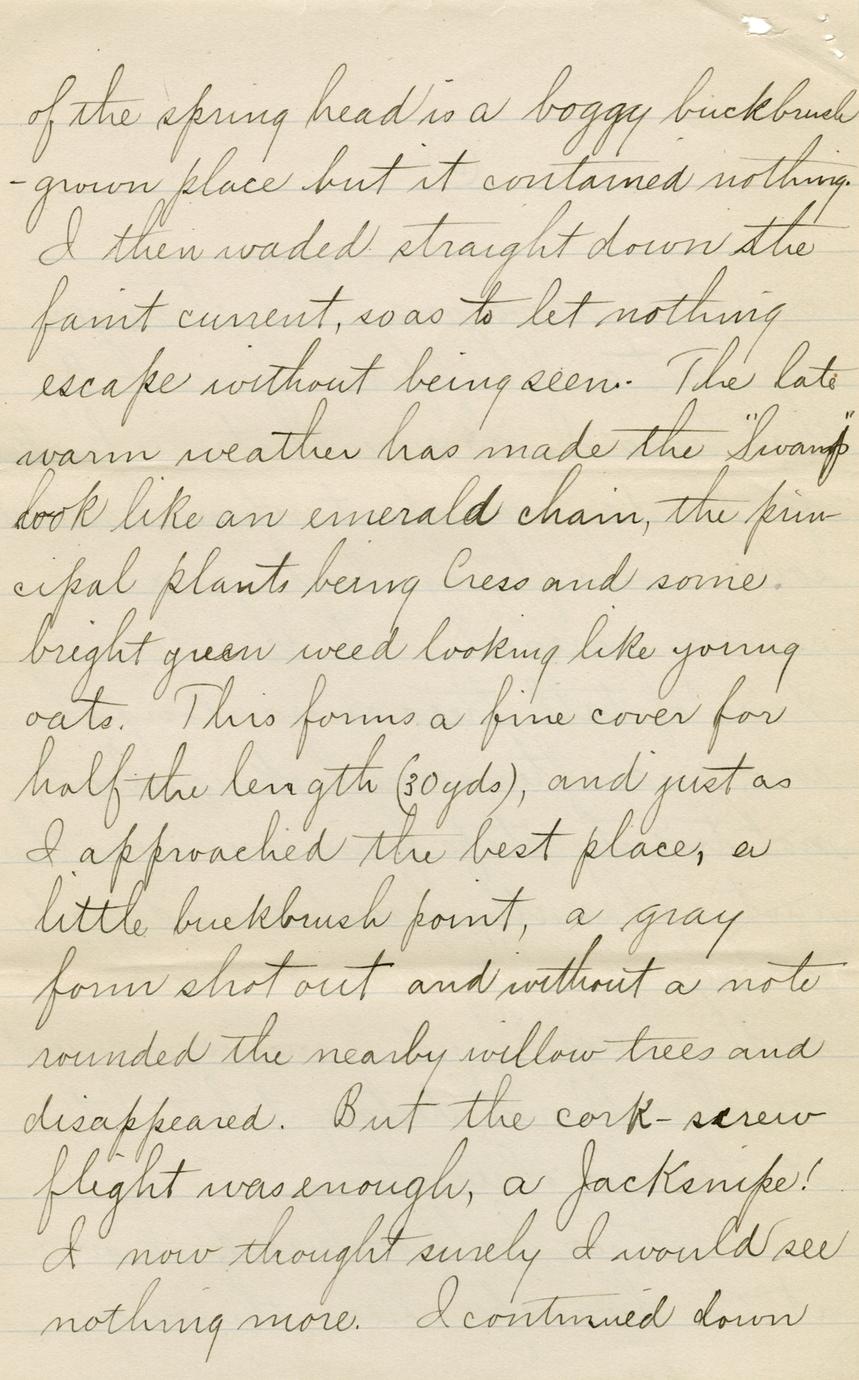 of the spring head is a boggy buckbrush
-grown place but it contained nothing.
I then waded straight down the
faint current, so as to let nothing
escape without being seen. The late
warm weather has made the "Swamp"
look like an emerald chain, the prin-
cipal plants being Cress and some
bright green weed looking like young
oats. This forms a fine cover for
half the length (30 yds), and just as
I approached the best place, a
little buckbrush point, a gray
form shot out and without a note
rounded the nearby willow trees and
disappeared. But the cork-screw
flight was enough, a Jacksnipe!
I now thought surely I would see
nothing more. I continued down